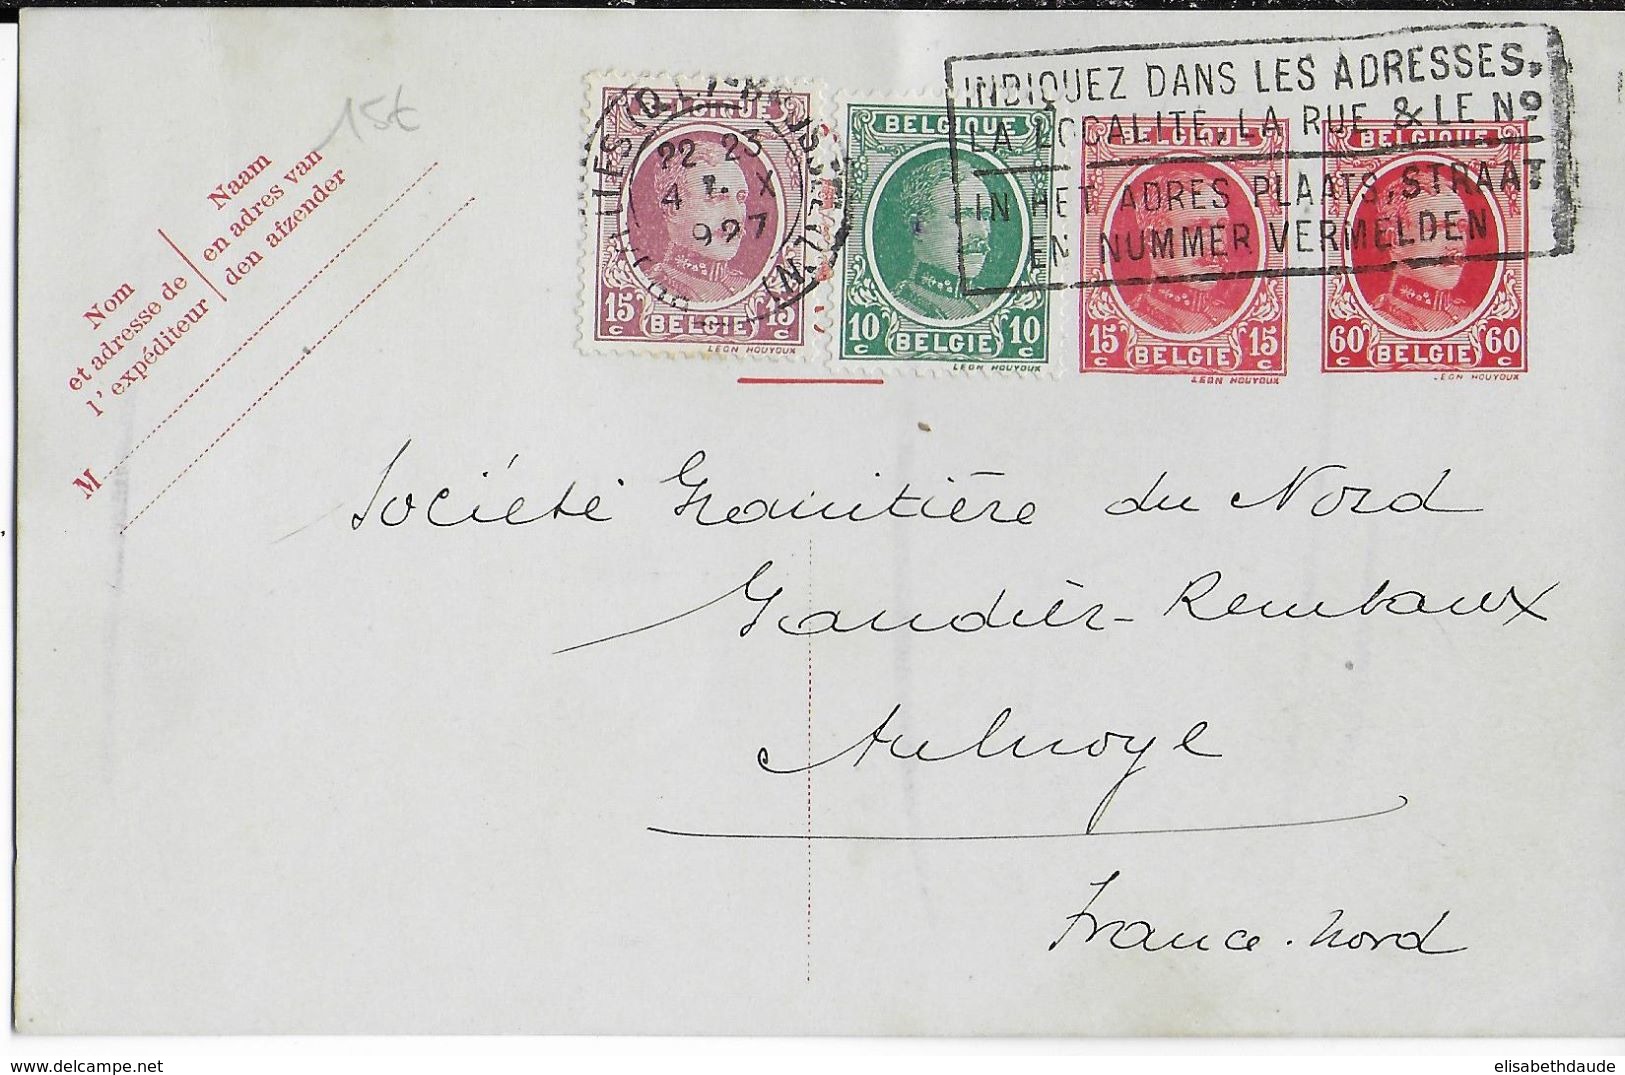 15€
Nom
et adresse de
l'expéditeur
Naam
en adres van
den afzender
M
22 23
4 X
927
BELGIQUE
15 c 15 c
BELGIE
LEON HOUYOUX
BELGIQUE
10 c 10 c
BELGIE
LEON HOUYOUX
BELGIQUE
15 c 15 c
BELGIE
LEON HOUYOUX
BELGIQUE
60 c 60 c
BELGIE
LEON HOUYOUX
INDIQUEZ DANS LES ADRESSES,
LA LOCALITÉ, LA RUE & LE No
IN HET ADRES PLAATS, STRAAT
EN NUMMER VERMELDEN
Société Granitière du Nord
Gaudier-Rembaux
Aulnoye
France-Nord
elisabethdaude
www.delcampe.net